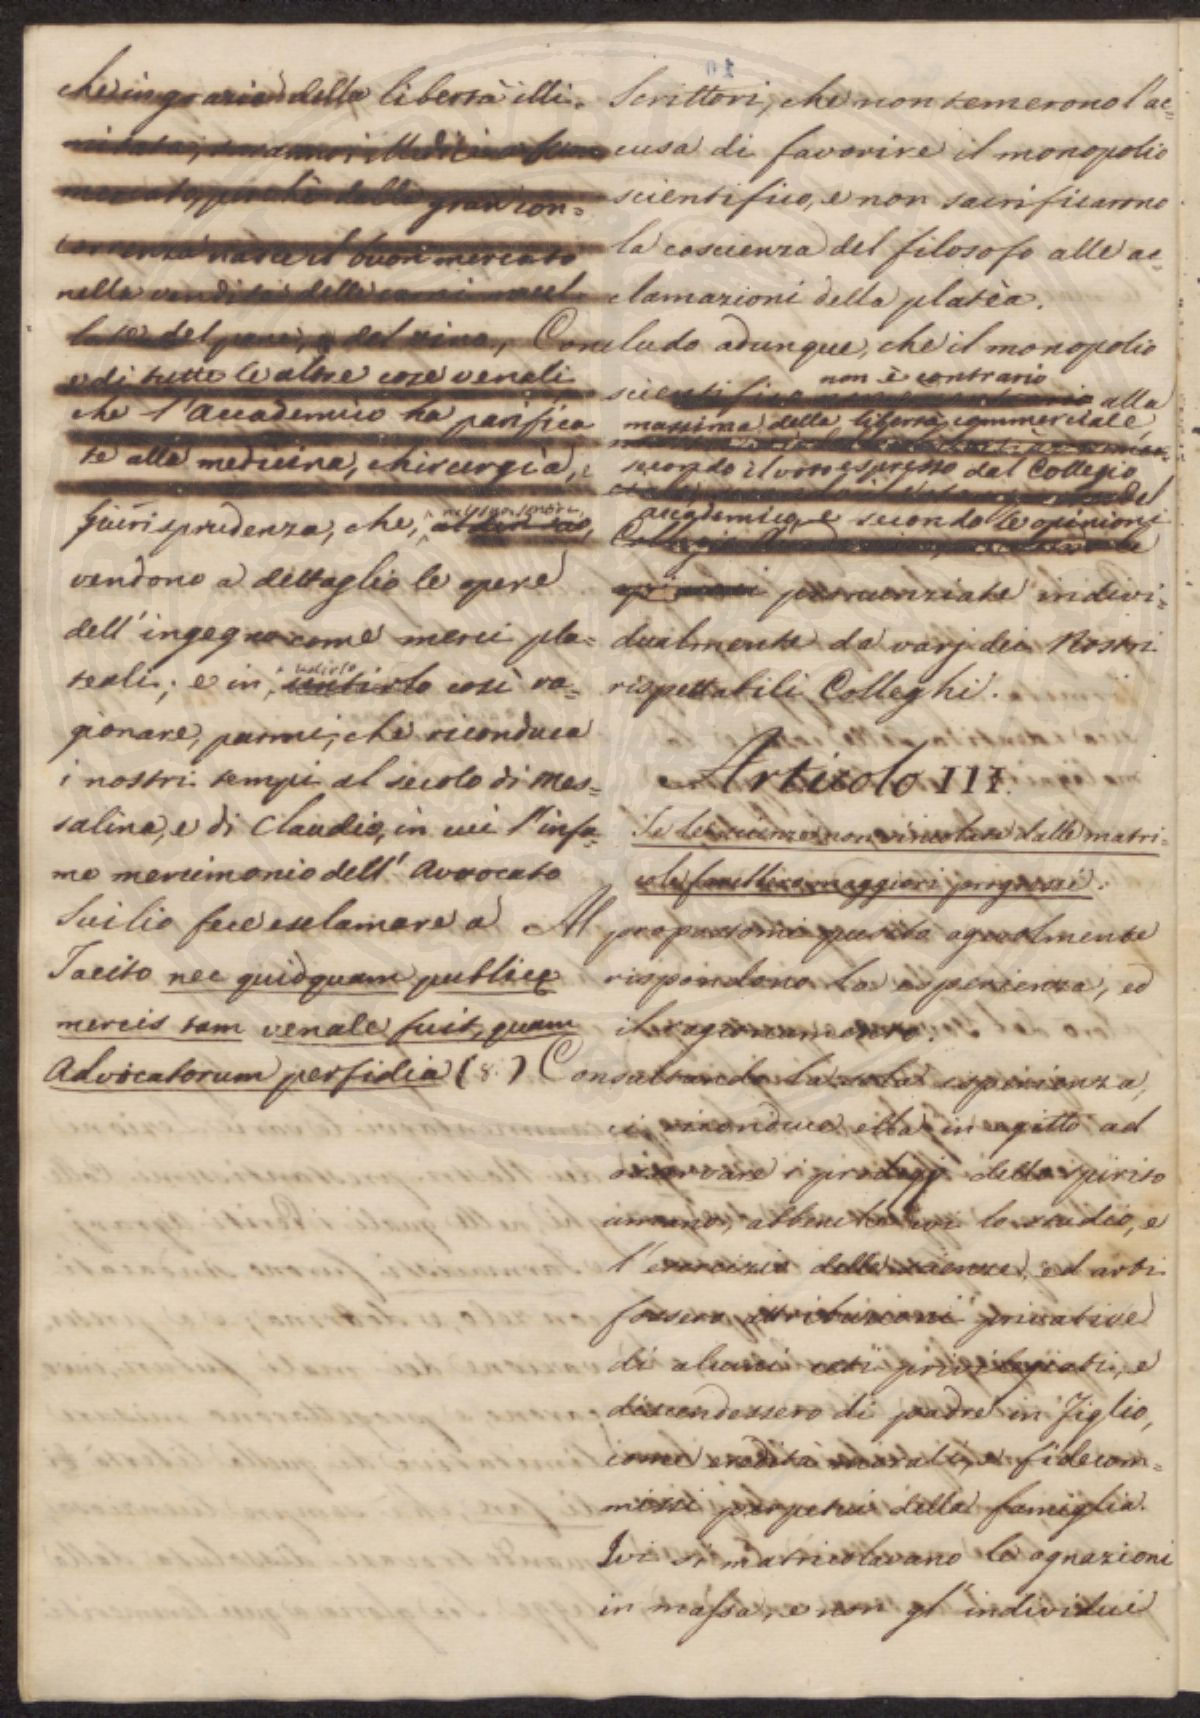 che in grazia della libertà illi-
mitata, saranno i Medici a buon
mercato, perchè dalla gran con-
correnza nasce il buon mercato
nella vendita delle carni macel-
late del pane, e del vino,
e di tutte le altre cose venali
che l'Accademico ha parifica
te alla medicina, chirurgia, e
Giurisprudenza, che,
vendono a dettaglio le opere
dell'ingegno come merci pla-
teali; e in, udirlo, sentirlo così ra-
gionare, parmi, che riconduca
i nostri tempi al secolo di Mes-
salina, e di Claudio, in cui l'infa-
me mercimonio dell'Avvocato
Suilio fece esclamare a
Tacito nec quidquam publicæ
mercis tam venale fuit, quam
Advocatorum perfidia (8.)
Scrittori, che non temerono l'ac-
cusa di favorire il monopolio
scientifico, e non sacrificarono
la coscienza del filosofo alle ac-
clamazioni della platèa.
Concludo adunque, che il monopolio
scientifico non è contrario alla
massima della libertà commerciale
secondo il voto espresso dal Collegio
accademico, e secondo le opinioni
pronunziate indivi-
dualmente da varj dei Nostri
rispettabili Colleghi.
Articolo III.
Se le scienze non vincolate dalle matri-
cole farebbero maggiori progressi.
Al propostomi quesito agevolmente
rispondono la esperienza, ed
il ragionamento.
Consultando la sola esperienza,
ci riconduce ella in egitto ad
osservare i prodigj dello spirito
umano, abbenchè ivi lo studio, e
l'esercizio delle scienze, ed arti
fossero attribuzioni privative
di alcuni ceti privilegiati, e
discendessero di padre in figlio,
come eredità morali, e fidecom-
missi perpetui della famiglia.
Ivi si matricolavano le agnazioni
in massa, e non gl'individui